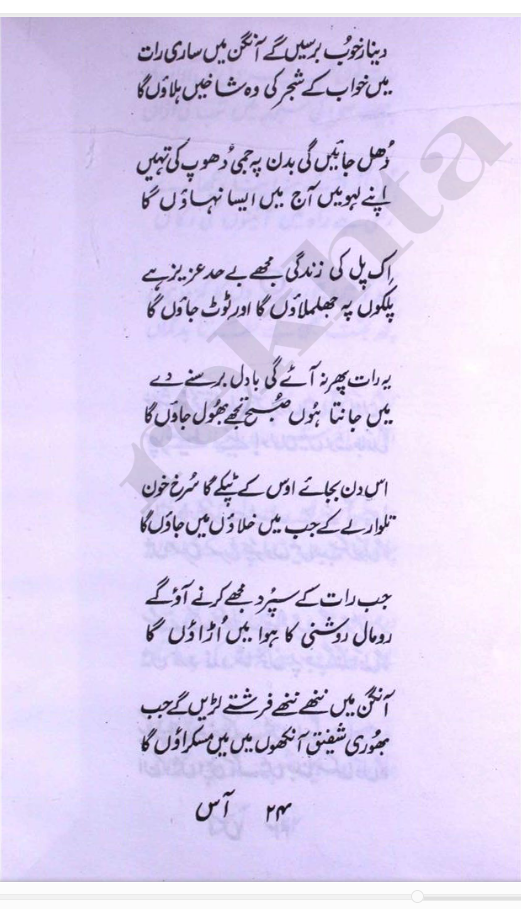 دینار خوب برسیں گے آنگن میں ساری رات
میں خواب کے شجر کی وہ شاخیں ہلاؤں گا
دُھل جائیں گی بدن پہ جمی دُھوپ کی تہیں
اپنے لہو میں آج میں ایسا نہاؤں گا
اِک پل کی زندگی مجھے بے حد عزیز ہے
پلکوں پہ جھلملاؤں گا اور ٹوٹ جاؤں گا
یہ رات پھر نہ آئے گی بادل برسنے دے
میں جانتا ہُوں صبح تجھے بھُول جاؤں گا
اس دن بجائے اوس کے ٹپکے گا سُرخ خون
تلوار لے کے جب میں خلاؤں میں جاؤں گا
جب رات کے سپُرد مجھے کرنے آؤ گے
رومال روشنی کا ہوا میں اُڑاؤں گا
آنگن میں ننھے ننھے فرشتے لڑیں گے جب
بھُوری شفیق آنکھوں میں میں مسکراؤں گا
۲۴ آس
rekhta